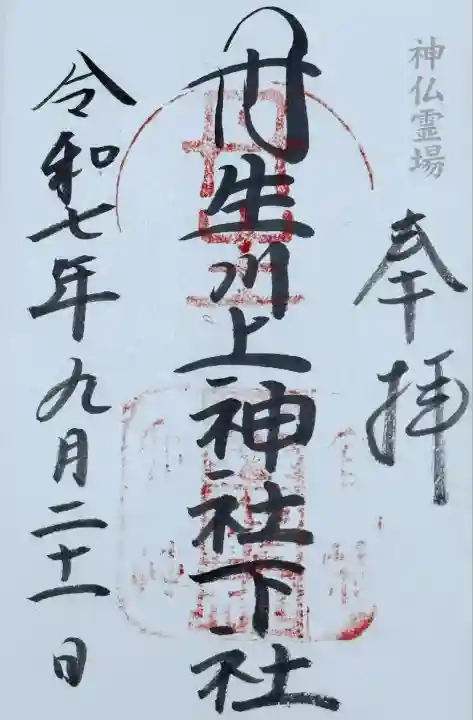 神仏霊場
奉拝
丹生川上神社下社
令和七年九月二十一日